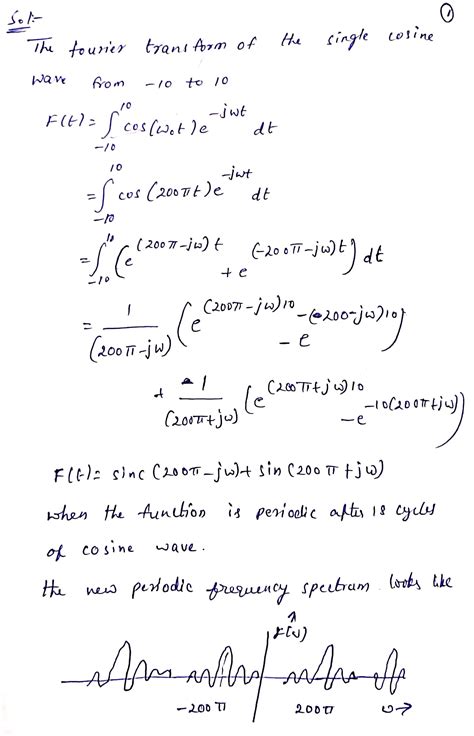 ①
Sol:-
The fourier transform of the single cosine
wave from -10 to 10
F(t) = ∫_{-10}^{10} cos(ω₀t) e^{-jωt} dt
= ∫_{-10}^{10} cos (200πt) e^{-jωt} dt
= ∫_{-10}^{10} (e^{(200π-jω)t} + e^{(-200π-jω)t}) dt
= 1/(200π-jω) (e^{(200π-jω)10} - e^{-(200-jω)10})
+ -1/(200π+jω) (e^{(200π+jω)10} - e^{-10(200π+jω)})
F(t) = sinc (200π-jω) + sin (200π+jω)
when the function is periodic after 18 cycles
of cosine wave.
the new periodic frequency spectrum looks like
F(ω)
-200π 200π ω→